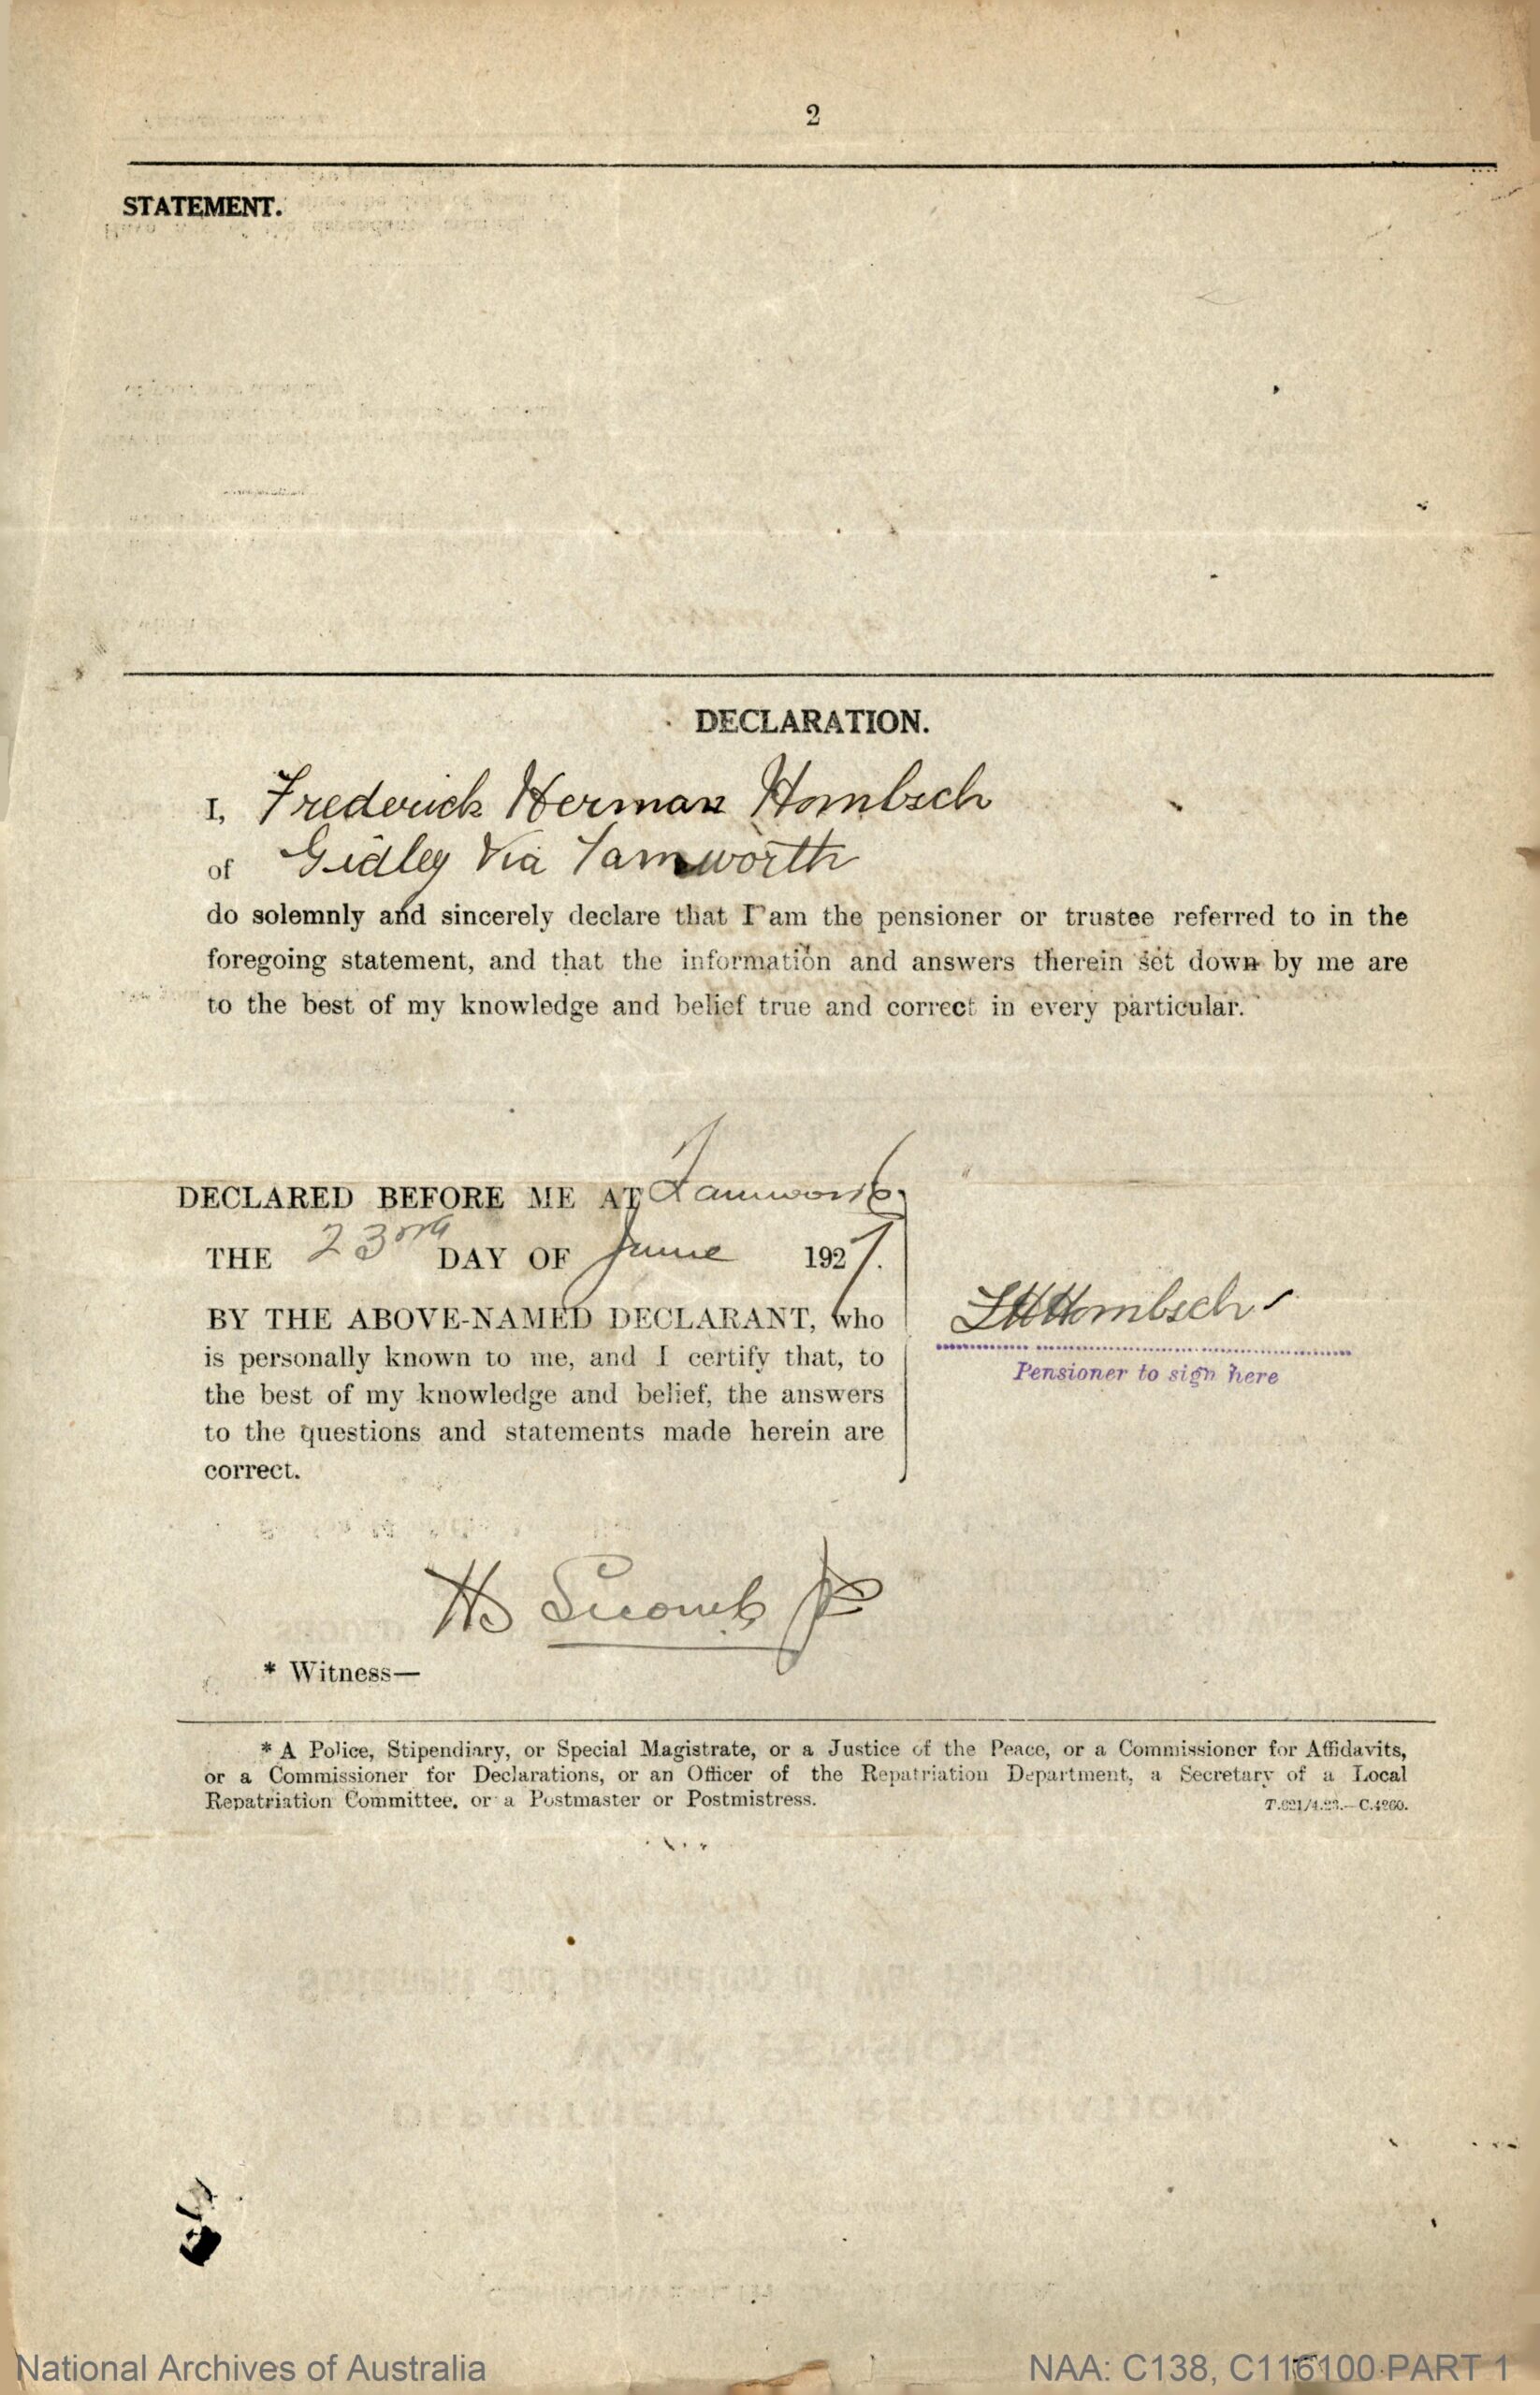 2
STATEMENT.
DECLARATION.
I, Frederick Herman Hombsch
of Gidley Via Tamworth
do solemnly and sincerely declare that I am the pensioner or trustee referred to in the
foregoing statement, and that the information and answers therein set down by me are
to the best of my knowledge and belief true and correct in every particular.
DECLARED BEFORE ME AT Tamworth
THE 23rd DAY OF June 1927.
BY THE ABOVE-NAMED DECLARANT, who
is personally known to me, and I certify that, to
the best of my knowledge and belief, the answers
to the questions and statements made herein are
correct.
FHHombsch
Pensioner to sign here
JP
* Witness—
* A Police, Stipendiary, or Special Magistrate, or a Justice of the Peace, or a Commissioner for Affidavits,
or a Commissioner for Declarations, or an Officer of the Repatriation Department, a Secretary of a Local
Repatriation Committee, or a Postmaster or Postmistress.
T.621/4.23.—C.4260.
National Archives of Australia
NAA: C138, C116100 PART 1